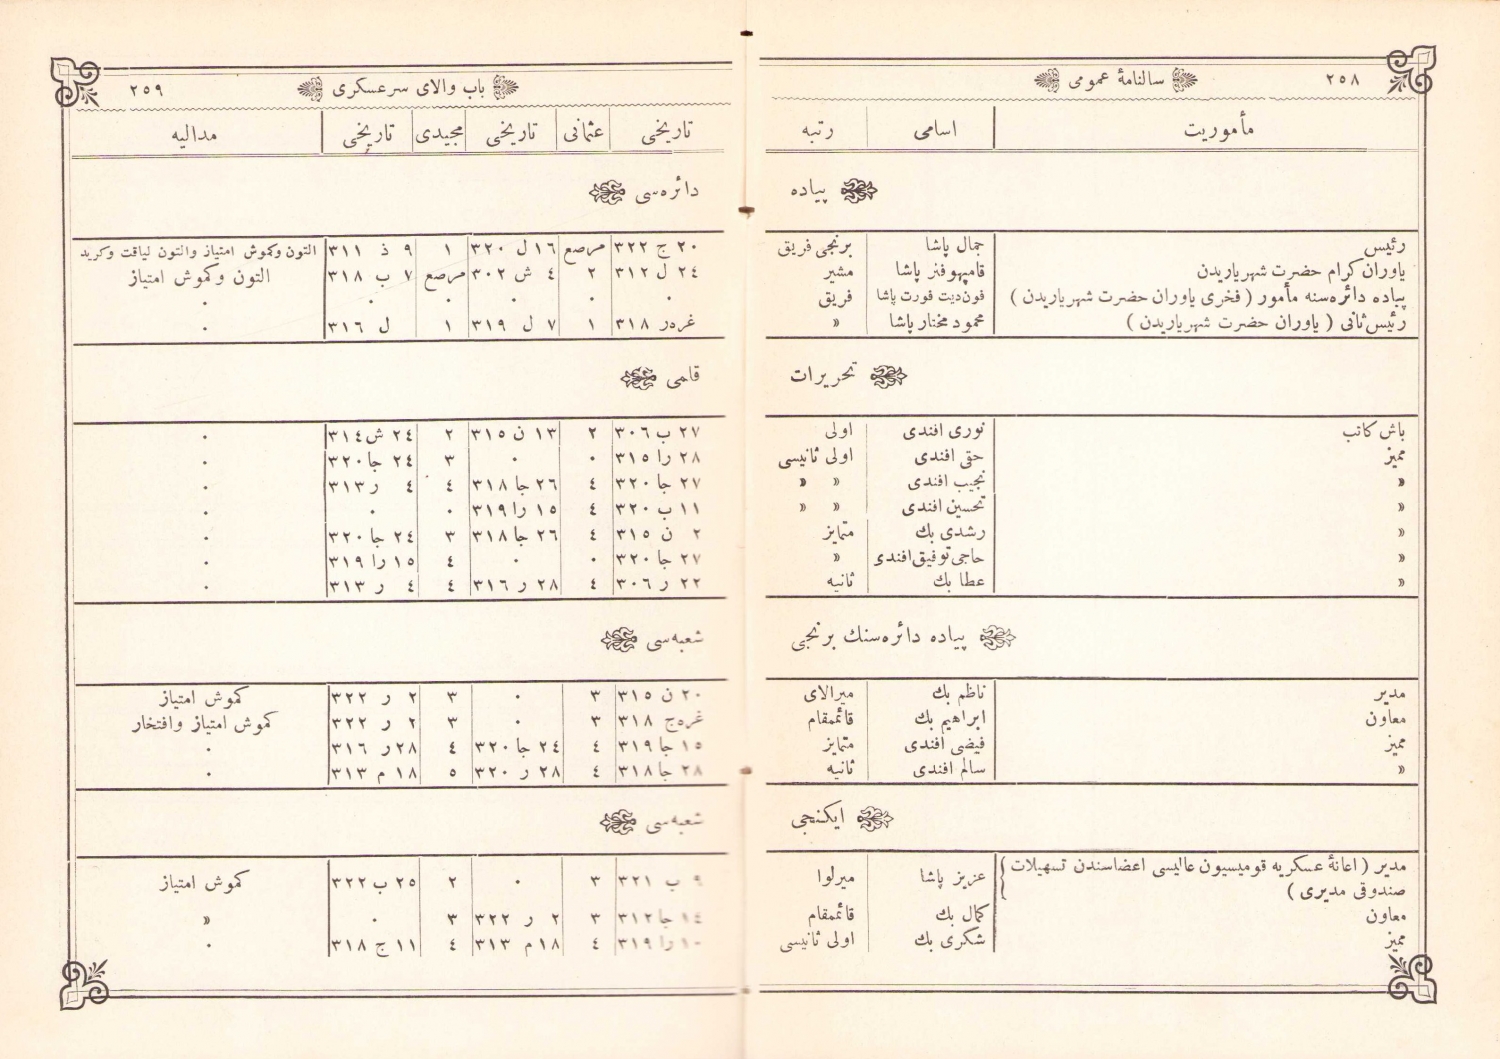 ٢٥٨ سالنامۀ عمومی
مأموریت اسامی رتبه
پیاده
رئیس جمال پاشا برنجی فریق
یاوران کرام حضرت شهریاریدن قامپهوفنر پاشا مشیر
پیاده دائره‌سنه مأمور ( فخری یاوران حضرت شهریاریدن ) فون‌دیت فورت پاشا فریق
رئیس ثانی ( یاوران حضرت شهریاریدن ) محمود مختار پاشا »
تحریرات
باش کاتب نوری افندی اولی
ممیز حقی افندی اولی ثانیسی
» نجیب افندی » »
» تحسین افندی » »
» رشدی بك متمایز
» حاجی توفیق افندی »
» عطا بك ثانیه
پیاده دائره‌سنك برنجی
مدیر ناظم بك میرالای
معاون ابراهیم بك قائممقام
ممیز فیضی افندی متمایز
» سالم افندی ثانیه
ایکنجی
مدیر ( اعانۀ عسکریه قومیسیون عالیسی اعضاسندن تسهیلات صندوقی مدیری ) عزیز پاشا میرلوا
معاون کمال بك قائممقام
ممیز شکری بك اولی ثانیسی
باب والای سرعسکری ٢٥٩
تاریخی عثمانی تاریخی مجیدی تاریخی مدالیه
دائره‌سی
٢٠ ج ٣٢٢ مرصع ١٦ ل ٣٢٠ ١ ٩ ذ ٣١١ التون وکموش امتیاز والتون لیاقت وکرید
٢٤ ل ٣١٢ ٢ ٤ ش ٣٠٢ مرصع ٧ ب ٣١٨ التون وکموش امتیاز
٠ ٠ ٠ ٠ ٠ ٠
غره‌ر ٣١٨ ١ ٧ ل ٣١٩ ١ ل ٣١٦ ٠
قلمی
٢٧ ب ٣٠٦ ٢ ١٣ ن ٣١٥ ٢ ٢٤ ش ٣١٤ ٠
٢٨ را ٣١٥ ٠ ٠ ٣ ٢٤ جا ٣٢٠ ٠
٢٧ جا ٣٢٠ ٤ ٢٦ جا ٣١٨ ٤ ٤ ر ٣١٣ ٠
١١ ب ٣٢٠ ٤ ١٥ را ٣١٩ ٠ ٠ ٠
٢ ن ٣١٥ ٤ ٢٦ جا ٣١٨ ٣ ٢٤ جا ٣٢٠ ٠
٢٧ جا ٣٢٠ ٠ ٠ ٤ ١٥ را ٣١٩ ٠
٢٢ ر ٣٠٦ ٤ ٢٨ ر ٣١٦ ٤ ٤ ر ٣١٣ ٠
شعبه‌سی
٢٠ ن ٣١٥ ٣ ٠ ٣ ٢ ر ٣٢٢ کموش امتیاز
غره‌ج ٣١٨ ٣ ٠ ٣ ٢ ر ٣٢٢ کموش امتیاز وافتخار
١٥ جا ٣١٩ ٤ ٢٤ جا ٣٢٠ ٤ ٢٨ ر ٣١٦ ٠
٢٨ جا ٣١٨ ٤ ٢٨ ر ٣٢٠ ٥ ١٨ م ٣١٣ ٠
شعبه‌سی
٩ ب ٣٢١ ٣ ٠ ٢ ٢٥ ب ٣٢٢ کموش امتیاز
١٤ جا ٣١٢ ٣ ٢ ر ٣٢٢ ٣ ٠ »
١٠ را ٣١٩ ٤ ١٨ م ٣١٣ ٤ ١١ ج ٣١٨ ٠